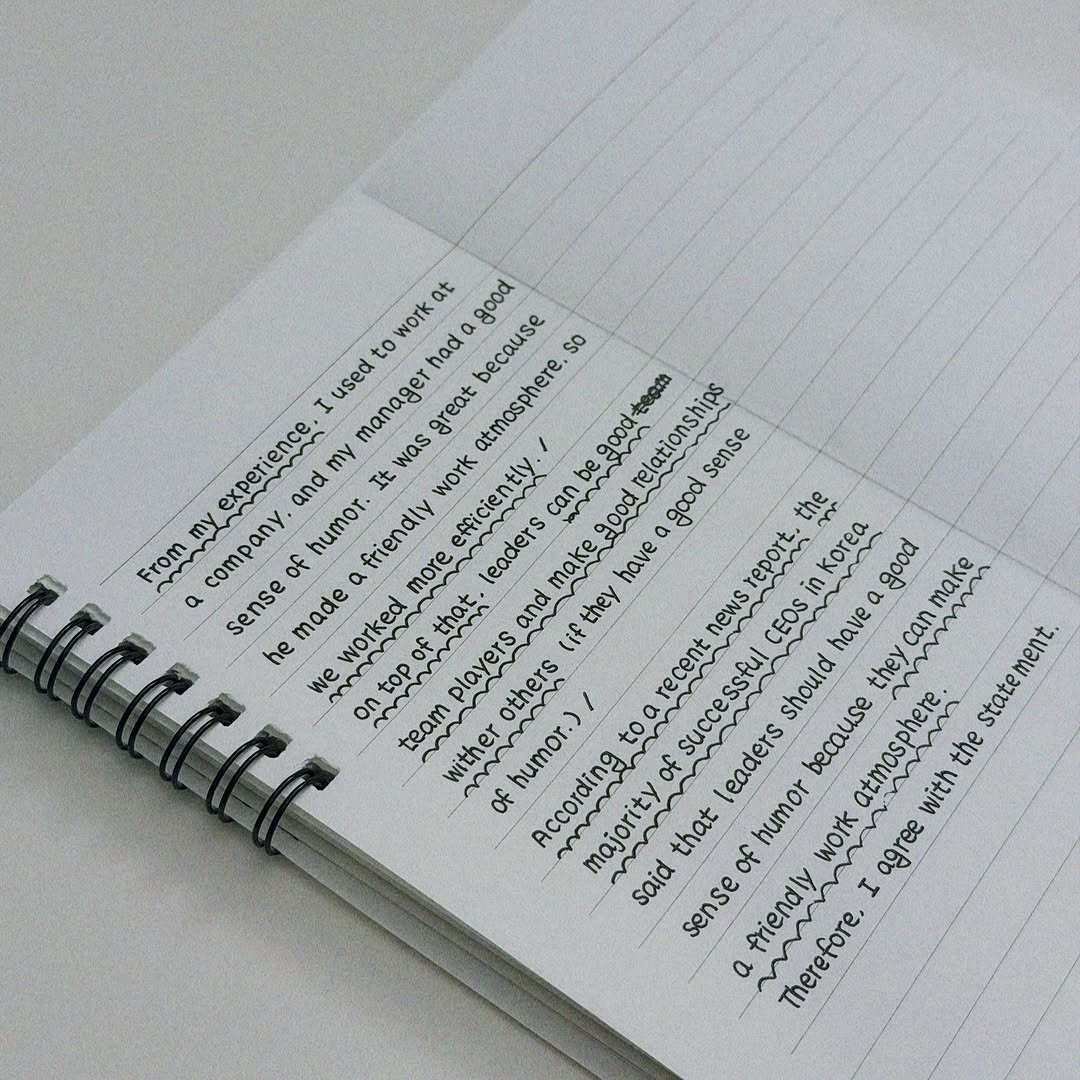 From my experience, I used to work at
a company, and my manager had a good
sense of humor. It was great because
he made a friendly work atmosphere. so
we worked more efficiently. /
on top of that, leaders can be good team
team players and make good relationships
wither others (if they have a good sense
of humor.) /
According to a recent news report, the
majority of successful CEOs in Korea
said that leaders should have a good
sense of humor because they can make
a friendly work atmosphere.
Therefore, I agree with the statement.